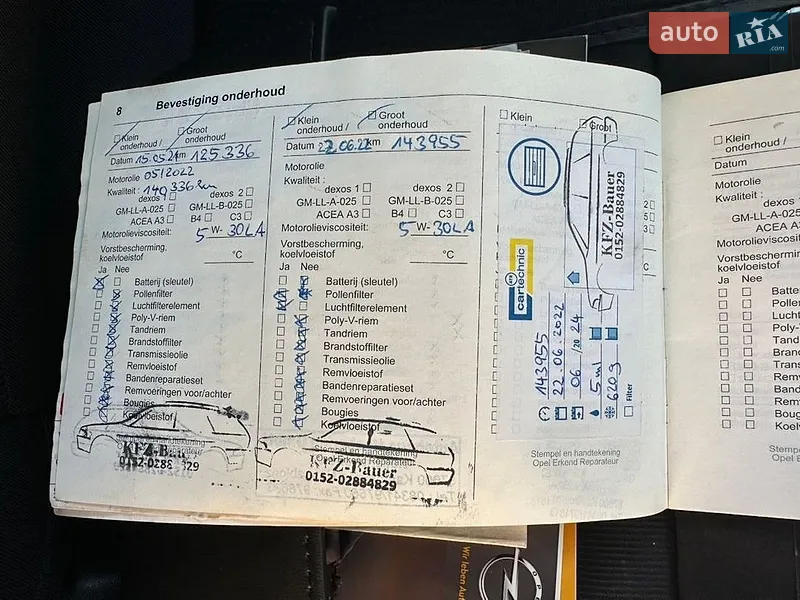 auto RIA .com
8 Bevestiging onderhoud
Klein onderhoud / Groot onderhoud
Datum 15.05.21 km 125.336
Motorolie 05/2022
Kwaliteit : 140 336 km
dexos 1 dexos 2
GM-LL-A-025 GM-LL-B-025
ACEA A3 B4 C3
Motorolieviscositeit: 5 W- 30LA
Vorstbescherming,
koelvloeistof °C
Ja Nee
Batterij (sleutel)
Pollenfilter
Luchtfilterelement
Poly-V-riem
Tandriem
Brandstoffilter
Transmissieolie
Remvloeistof
Bandenreparatieset
Remvoeringen voor/achter
Bougies
Koelvloeistof
Stempel en handtekening
KFZ-Bauer
0152-0288 829
Klein onderhoud / Groot onderhoud
Datum 22.06.22 km 143955
Motorolie
Kwaliteit :
dexos 1 dexos 2
GM-LL-A-025 GM-LL-B-025
ACEA A3 B4 C3
Motorolieviscositeit: 5 W- 30LA
Vorstbescherming,
koelvloeistof °C
Ja Nee
Batterij (sleutel)
Pollenfilter
Luchtfilterelement
Poly-V-riem
Tandriem
Brandstoffilter
Transmissieolie
Remvloeistof
Bandenreparatieset
Remvoeringen voor/achter
Bougies
Koelvloeistof
Stempel en handtekening
Opel Erkend Reparateur
KFZ-Bauer
0152-02884829
Klein Groot
KFZ-Bauer
0152-02884829
cartechnic
143955
22.06.2022
06 /20 24
5 ml
620 g
Filter
Stempel en handtekening
Opel Erkend Reparateur
Klein
onderhoud /
Datum
Motorolie
Kwaliteit :
dexos
GM-LL-A-025
ACEA A3
Motorolieviscosite
Vorstbescherming
koelvloeistof
Ja Nee
Batte
Polle
Luch
Poly-
Tand
Bran
Tran
Rem
Band
Rem
Boug
Koel
Wir leben Aut
OP